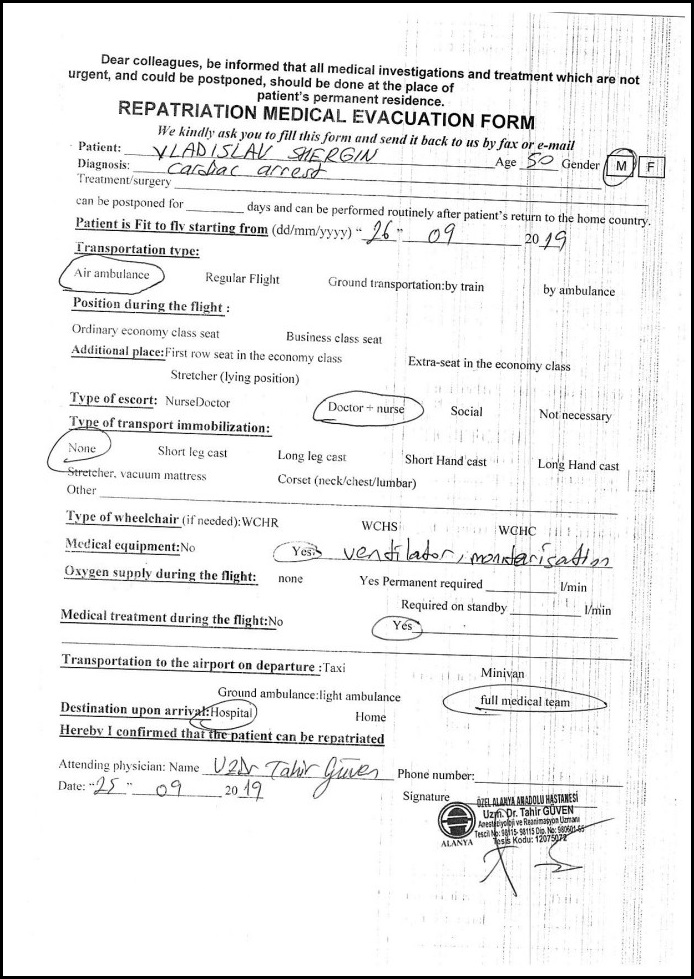 Dear colleagues, be informed that all medical investigations and treatment which are not
urgent, and could be postponed, should be done at the place of
patient's permanent residence.
REPATRIATION MEDICAL EVACUATION FORM
We kindly ask you to fill this form and send it back to us by fax or e-mail
Patient: VLADISLAV SHERGIN Age 50 Gender M F
Diagnosis: cardiac arrest
Treatment/surgery
can be postponed for days and can be performed routinely after patient's return to the home country.
Patient is Fit to fly starting from (dd/mm/yyyy) "26" 09 2019
Transportation type:
Air ambulance Regular Flight Ground transportation:by train by ambulance
Position during the flight :
Ordinary economy class seat Business class seat
Additional place:First row seat in the economy class Extra-seat in the economy class
Stretcher (lying position)
Type of escort: NurseDoctor Doctor + nurse Social Not necessary
Type of transport immobilization:
None Short leg cast Long leg cast Short Hand cast Long Hand cast
Stretcher, vacuum mattress Corset (neck/chest/lumbar)
Other
Type of wheelchair (if needed):WCHR WCHS WCHC
Medical equipment:No Yes: ventilator, monitorisation
Oxygen supply during the flight: none Yes Permanent required l/min
Required on standby l/min
Medical treatment during the flight:No Yes
Transportation to the airport on departure :Taxi Minivan
Ground ambulance:light ambulance full medical team
Destination upon arrival:Hospital Home
Hereby I confirmed that the patient can be repatriated
Attending physician: Name UzDr Tahir Güven Phone number:
Date: "25" 09 2019 Signature
ÖZEL ALANYA ANADOLU HASTANESİ
Uzm. Dr. Tahir GÜVEN
Anesteziyoloji ve Reanimasyon Uzmanı
Tescil No: 98115- 98115 Dip. No:
Tesis Kodu: 12075072
ALANYA